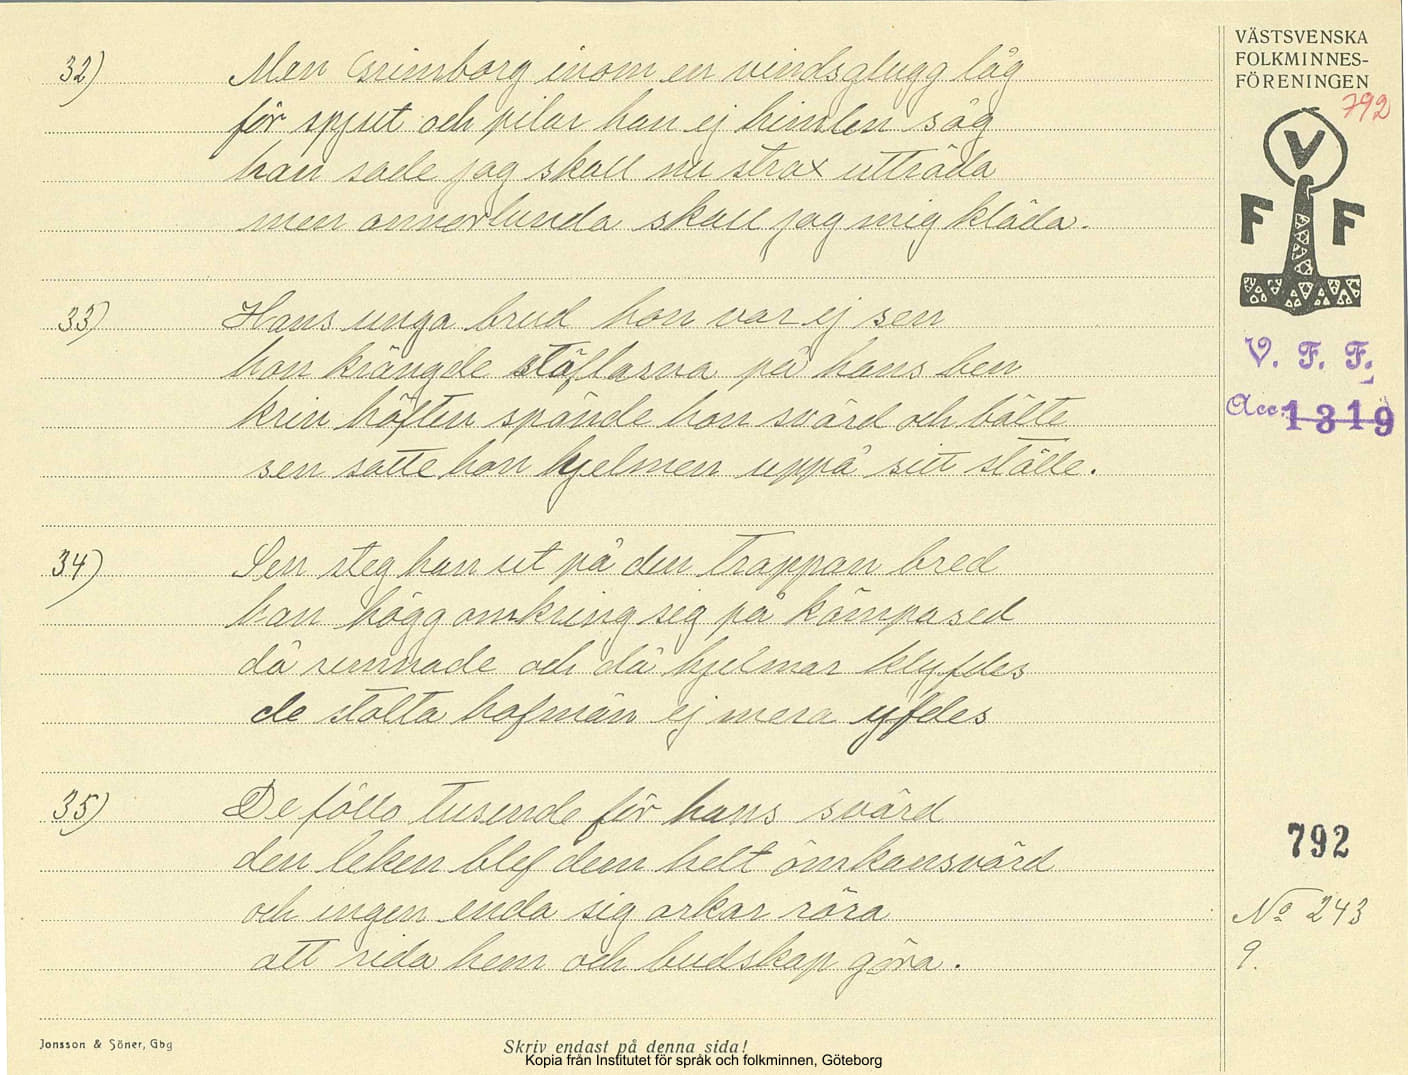 32) Men Grimborg inom en vindsglugg låg
för spjut och pilar han ej himlen såg
han sade jag skall nu strax utträda
men annorlunda skall jag mig kläda.
33) Hans unga brud hon var ej sen
hon krängde stöflarna på hans ben
krin höften spände hon svärd och bälte
sen satte hon hjelmen uppå sitt ställe.
34) Sen steg han ut på den trappan bred
han högg omkring sig på kämpased
då remnade och då hjelmar klyfdes
de stolta hofmän ej mera yfdes
35) De föllo tusende för hans svärd
den leken blef dem helt ömkansvärd
och ingen enda sig orkar röra
att rida hem och budskap göra.
VÄSTSVENSKA
FOLKMINNES-
FÖRENINGEN
792
V
F F
V. F. F.
Acc. 1319
792
No 243
9.
Jonsson & Söner, Gbg
Skriv endast på denna sida!
Kopia från Institutet för språk och folkminnen, Göteborg